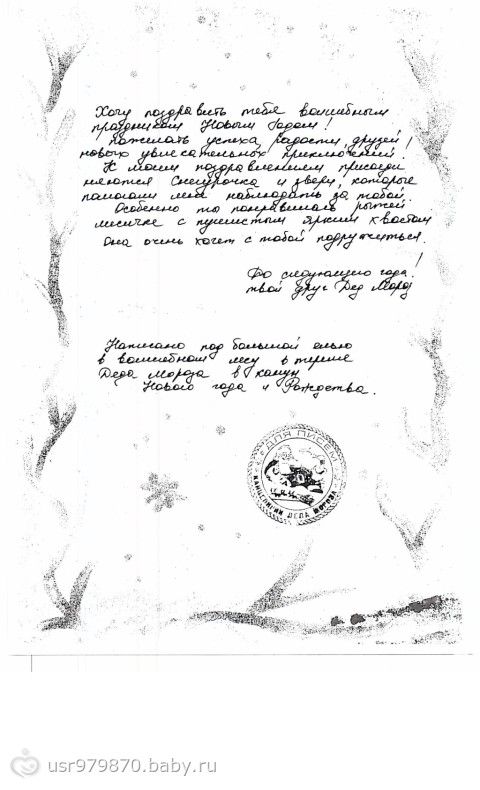 Хочу поздравить тебя волшебным
праздником Новым Годом!
Пожелать успеха, радости, друзей,
новых увлекательных приключений!
К моим поздравлениям присоеди
няются Снегурочка и звери, которые
помогали мне наблюдать за тобой.
Особенно ты понравилась рыжей
лисичке с пушистым ярким хвостом
Она очень хочет с тобой подружиться.
До следующего года!
твой друг Дед Мороз
Написано под большой елью
в волшебном лесу в тереме
Деда Мороза в канун
Нового года и Рождества.
ДЛЯ ПИСЕМ
КАНЦЕЛЯРИЯ ДЕДА МОРОЗА
usr979870.baby.ru